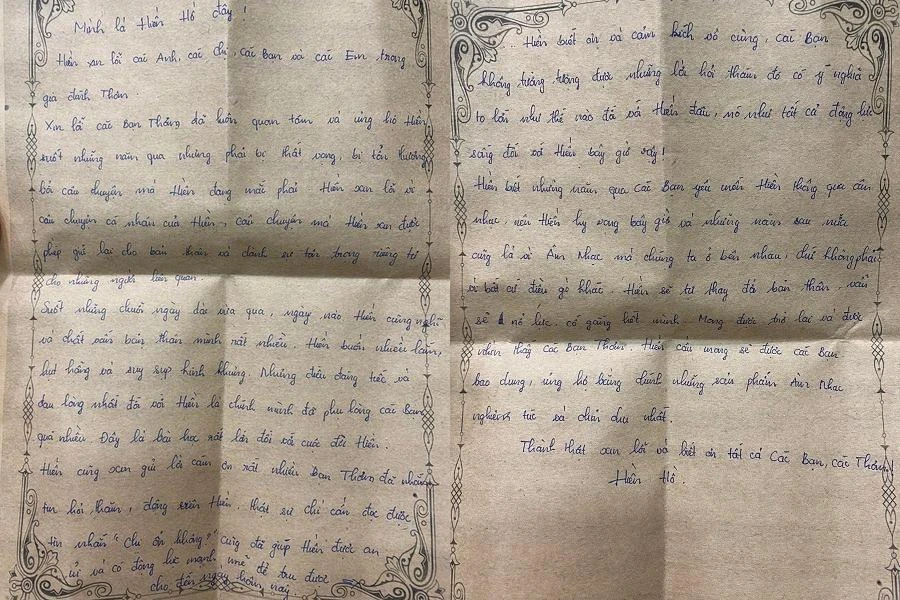 Mình là Hiền Hồ đây !
Hiền xin lỗi các Anh, các chị, các Bạn và các Em trong
gia đình Thơm.
Xin lỗi các Bạn Thơm đã luôn quan tâm và ủng hộ Hiền
suốt những năm qua nhưng phải bị thất vọng, bị tổn thương
bởi câu chuyện mà Hiền đang mắc phải. Hiền xin lỗi vì
câu chuyện cá nhân của Hiền, câu chuyện mà Hiền xin được
phép giữ lại cho bản thân và dành sự tôn trọng riêng tư
cho những người liên quan.
Suốt những chuỗi ngày dài vừa qua, ngày nào Hiền cũng nghĩ
và chất vấn bản thân mình rất nhiều. Hiền buồn nhiều lắm,
hụt hẫng và suy sụp kinh khủng. Những điều đáng tiếc và
đau lòng nhất đối với Hiền là chính mình đã phụ lòng các Bạn
quá nhiều. Đây là bài học rất lớn đối với cuộc đời Hiền.
Hiền cũng xin gửi lời cảm ơn rất nhiều Bạn Thơm đã nhắn
tin hỏi thăm, động viên Hiền. Thật sự chỉ cần đọc được
tin nhắn "Chị ổn không?" cũng đã giúp Hiền được an
ủi và có động lực mạnh mẽ để trụ được
cho đến ngày hôm nay.
... Hiền biết ơn và cảm kích vô cùng, các Bạn
không tưởng tượng được những lời hỏi thăm đó có ý nghĩa
to lớn như thế nào đối với Hiền đâu, nó như tất cả động lực
sống đối với Hiền bây giờ vậy!
Hiền biết những năm qua các Bạn yêu mến Hiền thông qua âm
nhạc, nên Hiền hy vọng bây giờ và những năm sau nữa
cũng là vì Âm Nhạc mà chúng ta ở bên nhau, chứ không phải
vì bất cứ điều gì khác. Hiền sẽ tự thay đổi bản thân, vẫn
sẽ nỗ lực, cố gắng hết mình. Mong được trở lại và được
nhìn thấy các Bạn Thơm. Hiền cầu mong sẽ được các Bạn
bao dung, ủng hộ bằng chính những sản phẩm Âm Nhạc
nghiêm túc và chỉn chu nhất.
Thành thật xin lỗi và biết ơn tất cả Các Bạn, các Thơm!
Hiền Hồ.